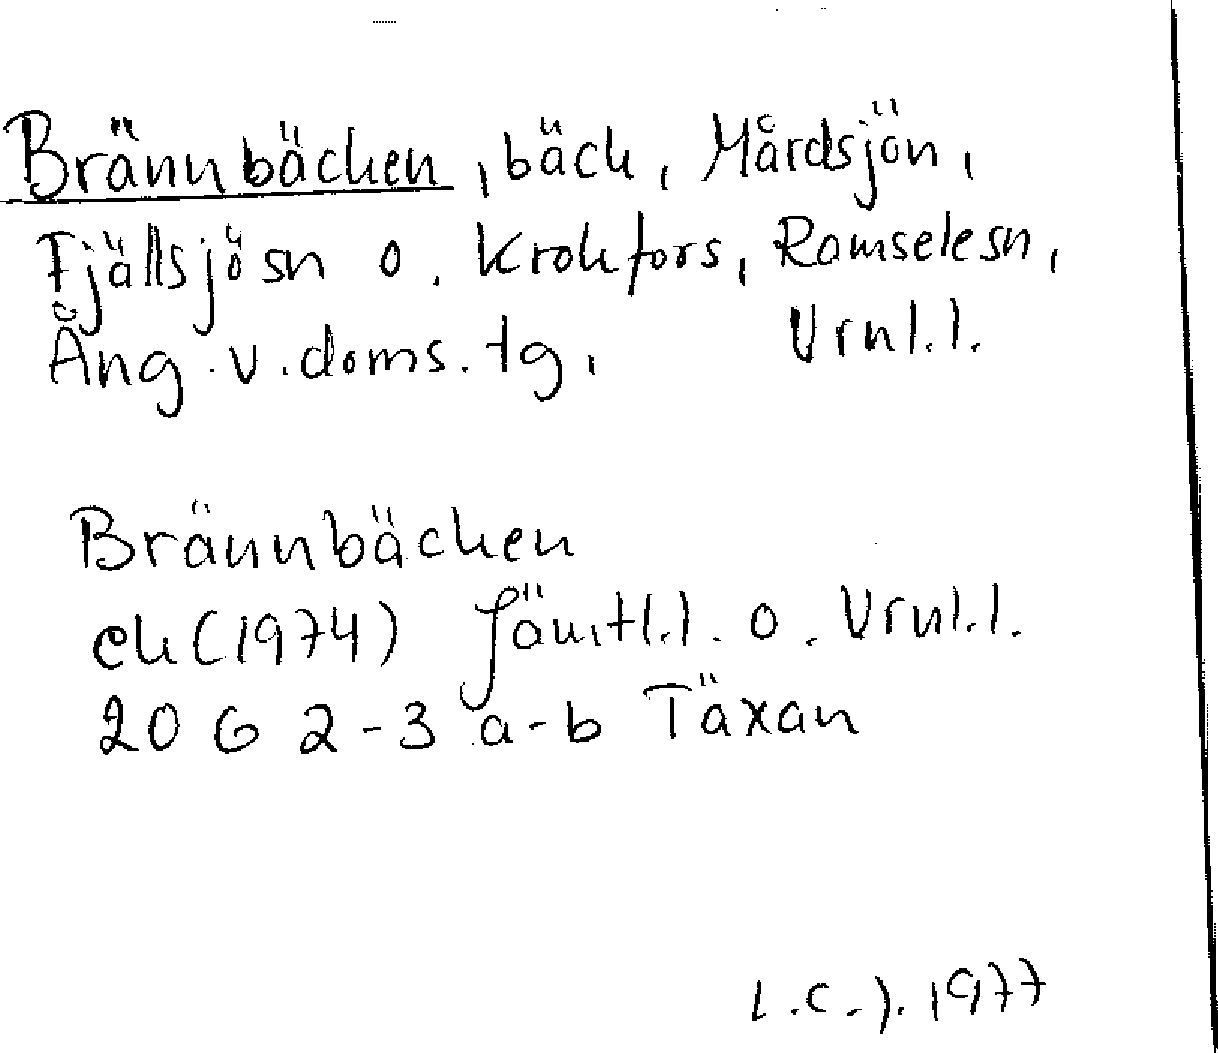 Brännbäcken, bäck, Mårdsjön,
Fjällsjösn o. Krokfors, Ramselesn,
Ång. v. doms. tg. Vrnl.l.
Brännbäcken
ek (1974) Jämtl.l. o. Vrnl.l.
20 G 2-3 a-b Täxan
L.C.J. 1977